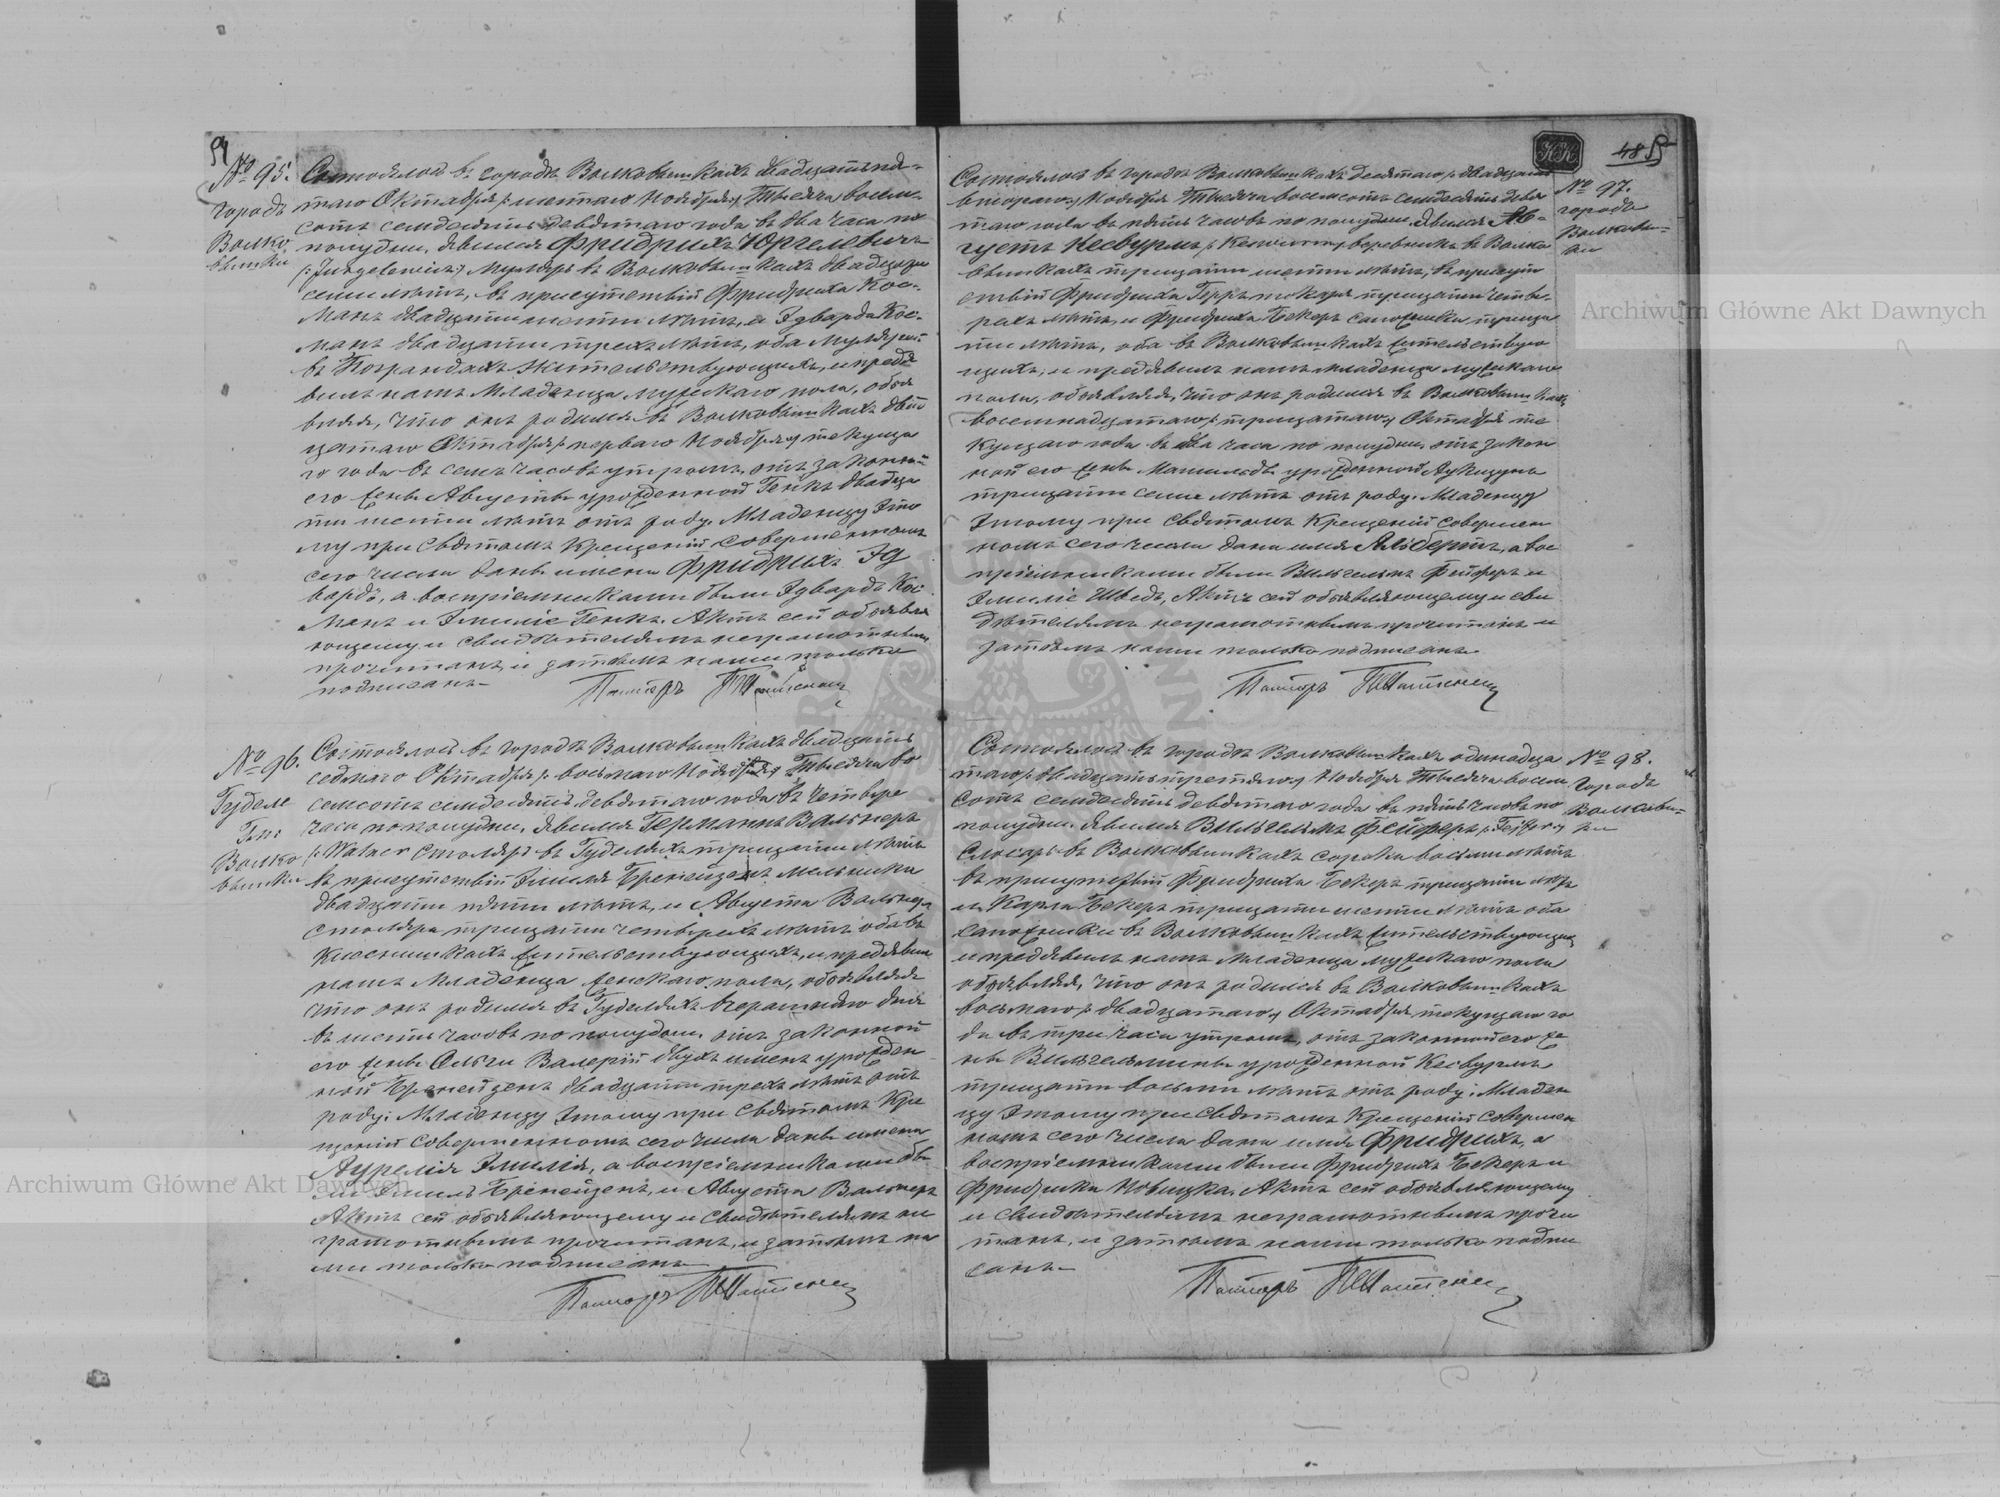 54
№ 95.
городъ
Волко
вышки
Состоялось въ городѣ Волковышкахъ двадцать пя-
таго Октября /: шестаго Ноября :/ Тысяча восемь
сотъ семдесятъ девятаго года въ два часа по
полудни. Явился Фридрихъ Юргелевичъ
/: Jurgelewicz :/ Муляръ въ Волковышкахъ двадцати
семи лѣтъ, въ присутствіи Фридриха Кос-
манъ двадцати шести лѣтъ, и Эдварда Кос-
манъ двадцати трехъ лѣтъ, оба Муляры
въ жительствующихъ, и предъя
вилъ намъ Младенца мужскаго пола, объя
вляя, что онъ родился въ Волковышкахъ двад
цатаго Октября /: перваго Ноября :/ текуща
го года въ семь часовъ утромъ, отъ законной
его жены Августы урожденной Генкъ двадца
ти шести лѣтъ отъ роду. Младенцу Это
му при Святомъ Крещеніи совершенномъ
сего числа даны имена Фридрихъ Эд
вардъ, а воспріемниками были Эдвардъ Кос
манъ и Эмиліе Генкъ. Актъ сей объявля
ющему и свидѣтелямъ неграмотнымъ
прочитанъ, и затѣмъ нами только
подписанъ.
Пасторъ
№ 96.
Гуделе
Гми:
Волко
вышки
Состоялось въ городѣ Волковышкахъ двадцать
седьмаго Октября /: восьмаго Ноября :/ Тысяча во
семсотъ семдесятъ девятаго года въ четыре
часа пополудни. Явился Германнъ Вальнеръ
/: Walner Столяръ въ Гуделяхъ тридцати лѣтъ
въ присутствіи Эмиля Бренейзенъ мельника
двадцати пяти лѣтъ, и Августа Вальнеръ
столяра тридцати четырехъ лѣтъ оба въ
жительствующихъ, и предъявилъ
намъ Младенца женскаго пола, объявляя
что онъ родился въ Гуделяхъ вчерашняго дня
въ шесть часовъ по полудни, отъ законной
его жены Ольги Валеріи двухъ именъ урожден
ной Бренейзенъ двадцати трехъ лѣтъ отъ
роду. Младенцу Этому при Святомъ Кре
щеніи совершенномъ сего числа даны имена
Аурелія Эмилія, а воспріемниками бы
ли Эмиль Бренейзенъ, и Августа Вальнеръ
Актъ сей объявляющему и свидѣтелямъ не
грамотнымъ прочитанъ, и затѣмъ на
ми только подписанъ
Пасторъ
KK
48 55
№ 97.
городъ
Волковы-
шки
Состоялось въ городѣ Волковышкахъ десятаго /: двадцать
втораго :/ Ноября Тысяча восемсотъ семдесятъ девя
таго года въ пять часовъ по полудни. Явился Ав-
густъ Кесвурмъ веревникъ въ Волко
вышкахъ тридцати шести лѣтъ, въ присут
ствіи Фридриха Герръ токаря тридцати четы-
рехъ лѣтъ, и Фридриха Бекеръ сапожника тридца
ти лѣтъ, оба въ Волковышкахъ жительствую
щихъ, и предъявилъ намъ младенца мужскаго
пола, объявляя, что онъ родился въ Волковышкахъ
восемнадцатаго /: тридцатаго :/ Октября те
кущаго года въ два часа по полудни, отъ закон
ной его жены Матильды урожденной
тридцати семи лѣтъ отъ роду. Младенцу
Этому при Святомъ Крещеніи совершен
номъ сего числа дано имя Альбертъ, а вос
пріемниками были Вильгельмъ Фейферъ и
Эмиліе Шведъ, Актъ сей объявляющему и сви
дѣтелямъ неграмотнымъ прочитанъ и
затѣмъ нами только подписанъ
Пасторъ
№ 98.
городъ
Волковы-
шки
Состоялось въ городѣ Волковышкахъ одинадца
таго /: двадцать третьяго :/ Ноября Тысяча восем
сотъ семдесятъ девятаго года въ пять часовъ по
полудни. Явился Вильгельмъ Фейферъ /: Fejffer :/
Слесарь въ Волковышкахъ сорока восьми лѣтъ
въ присутствіи Фридриха Бекеръ тридцати лѣтъ
и Карла Бекеръ тридцати шести лѣтъ оба
сапожники въ Волковышкахъ жительствующихъ
и предъявилъ намъ Младенца мужскаго пола
объявляя, что онъ родился въ Волковышкахъ
восьмаго /: двадцатаго :/ Октября, текущаго го
да въ три часа утромъ, отъ законной его же
ны Вильгельмины урожденной Кесвурмъ
тридцати восьми лѣтъ отъ роду. Младен
цу Этому при Святомъ Крещеніи Совершен
номъ сего числа дано имя Фридрихъ, а
воспріемниками были Фридрихъ Бекеръ и
Фридрика Новицка. Актъ сей объявляющему
и свидѣтелямъ неграмотнымъ прочи
танъ, и затѣмъ нами только подпи
санъ
Пасторъ
Archiwum Główne Akt Dawnych
Archiwum Główne Akt Dawnych